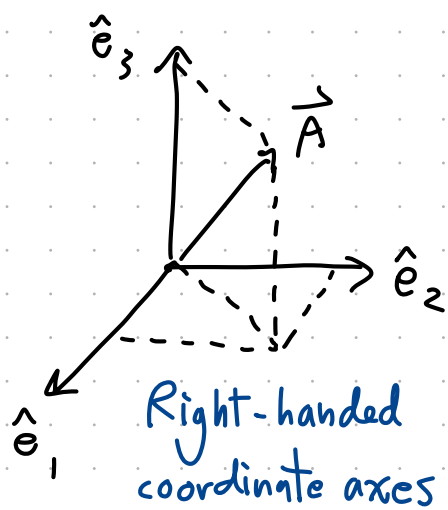 ê₃
A⃗
ê₂
ê₁
Right-handed
coordinate axes